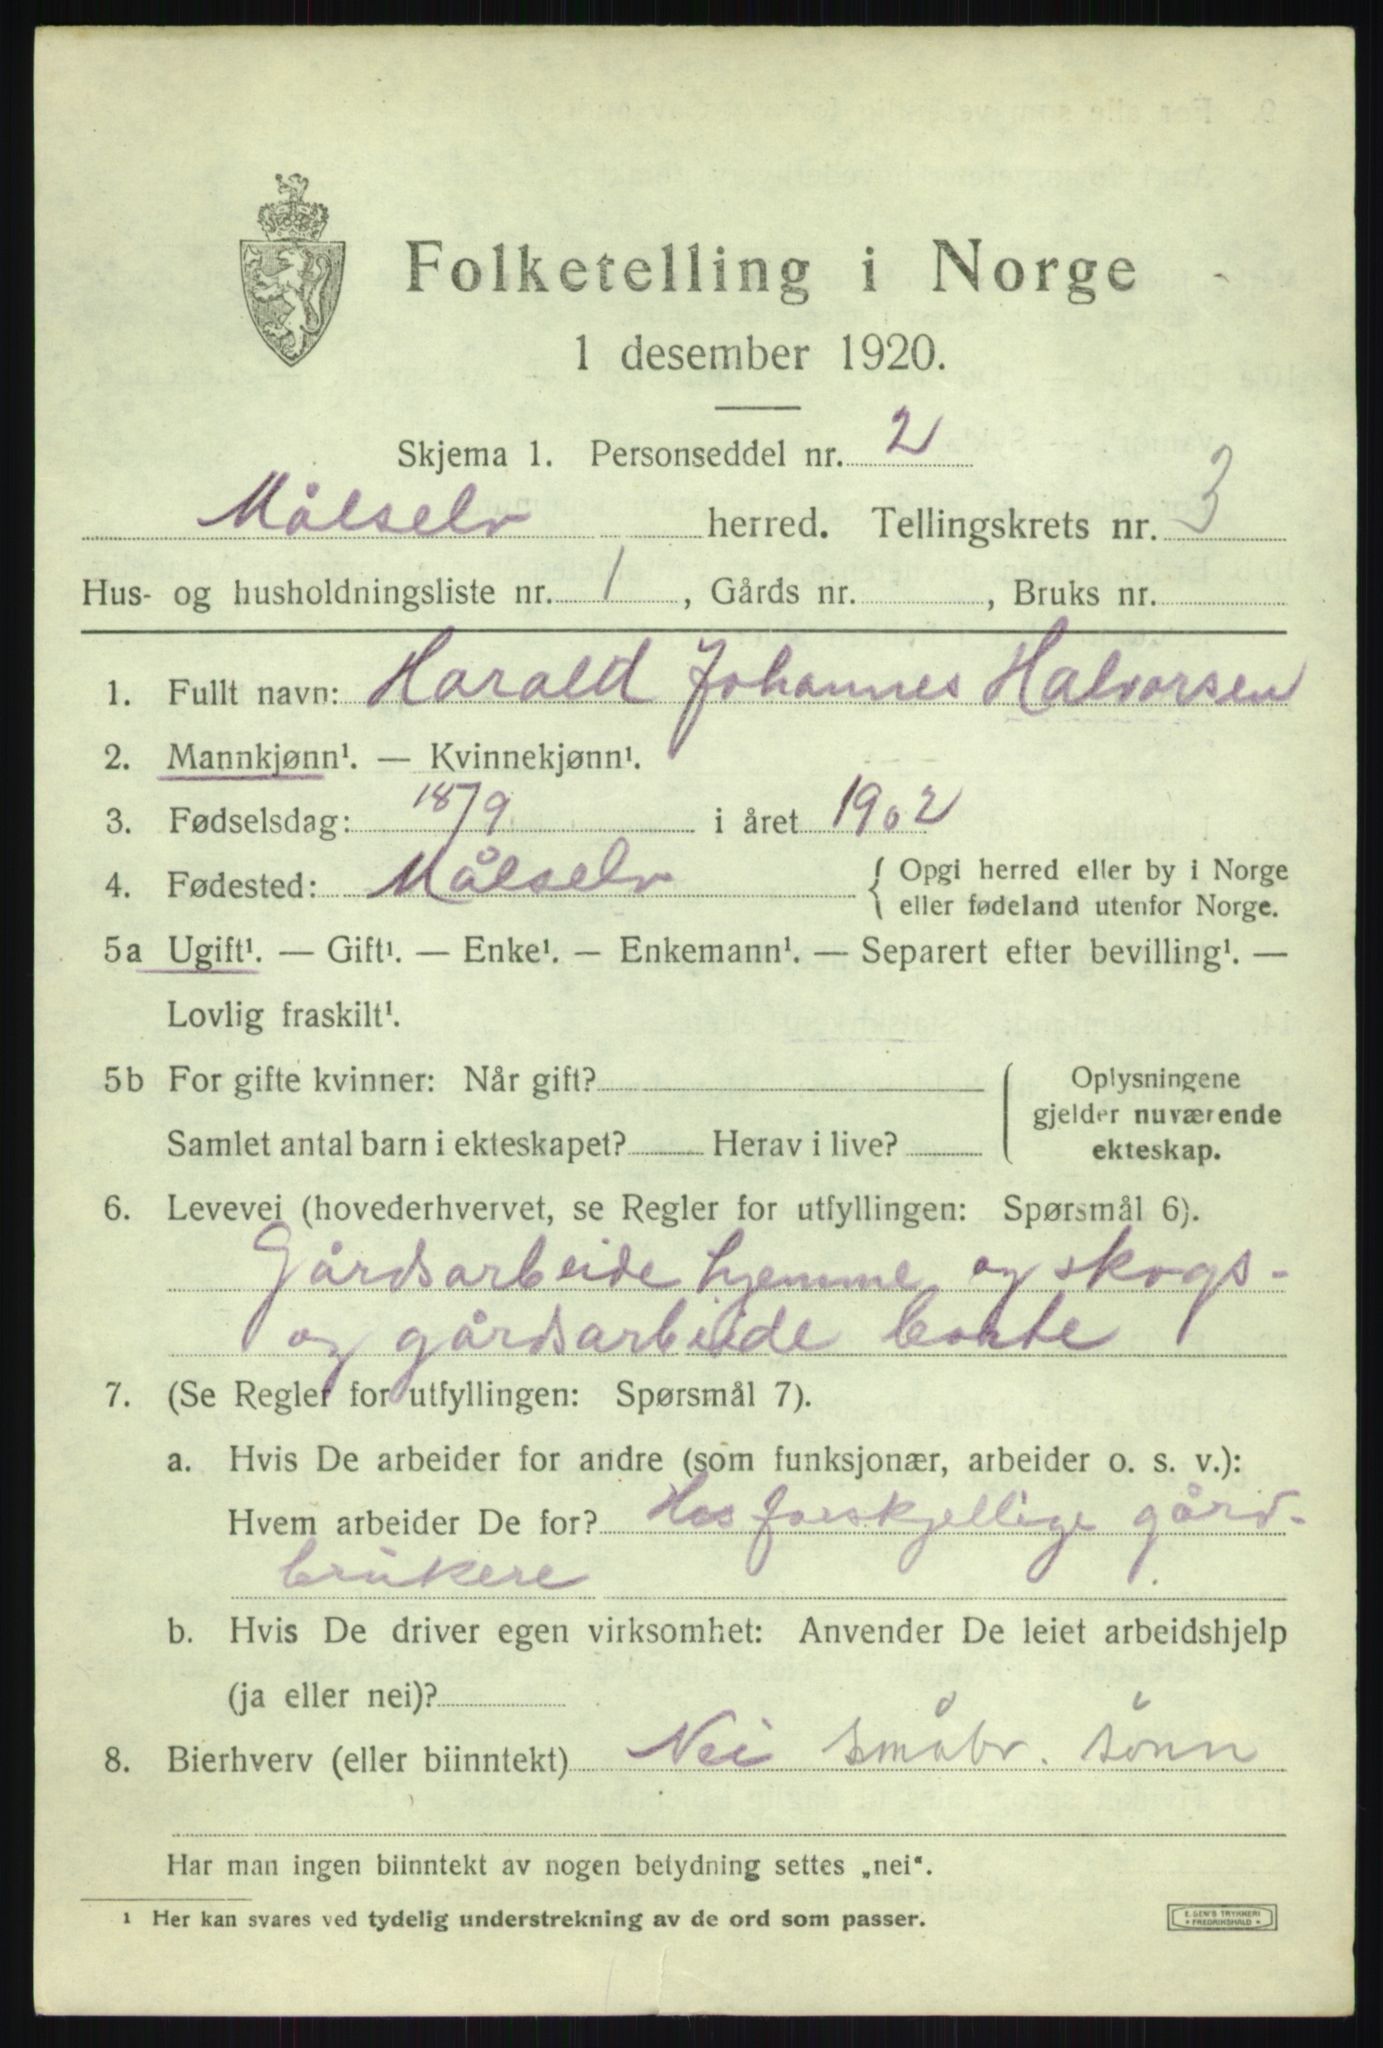 Folketelling i Norge
1 desember 1920.
Skjema 1. Personseddel nr. 2
Målselv herred. Tellingskrets nr. 3
Hus- og husholdningsliste nr. 1, Gårds nr. , Bruks nr.
1. Fullt navn: Harald Johannes Halvorsen
2. Mannkjønn¹. — Kvinnekjønn¹.
3. Fødselsdag: 18/9 i året 1902
4. Fødested: Målselv { Opgi herred eller by i Norge
eller fødeland utenfor Norge.
5a Ugift¹. — Gift¹. — Enke¹. — Enkemann¹. — Separert efter bevilling¹. —
Lovlig fraskilt¹.
5b For gifte kvinner: Når gift? ( Oplysningene
gjelder nuværende
Samlet antal barn i ekteskapet? Herav i live? ekteskap.
6. Levevei (hovederhvervet, se Regler for utfyllingen: Spørsmål 6).
Gårdsarbeide hjemme og skogs-
og gårdsarbeide borte
7. (Se Regler for utfyllingen: Spørsmål 7).
a. Hvis De arbeider for andre (som funksjonær, arbeider o. s. v.):
Hvem arbeider De for? Hos forskjellige gård-
brukere
b. Hvis De driver egen virksomhet: Anvender De leiet arbeidshjelp
(ja eller nei)?
8. Bierhverv (eller biinntekt) Nei småbr. sönn
Har man ingen biinntekt av nogen betydning settes „nei“.
¹ Her kan svares ved tydelig understrekning av de ord som passer.
TRYKKERI
* FREDRIKSHALD *